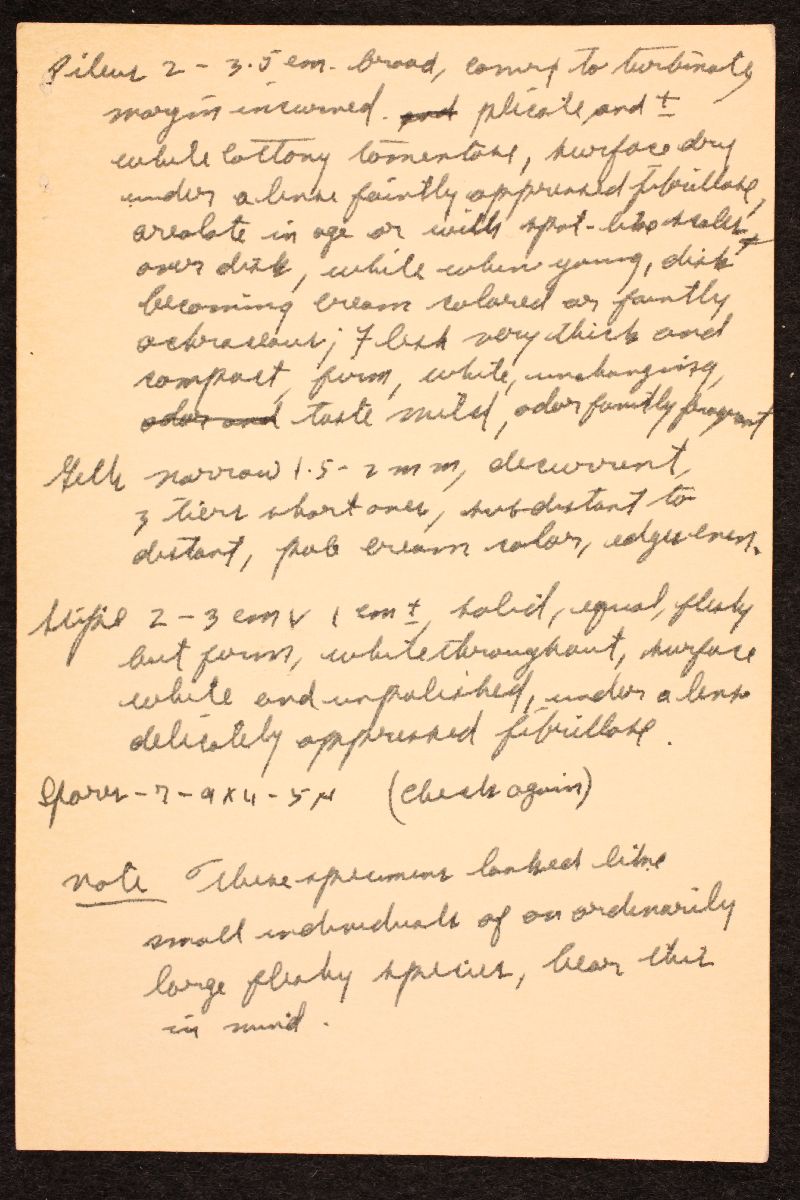 Pileus 2 - 3.5 cm. broad, convex to turbinate,
margin incurved. and plicate, and ±
white cottony tomentose, surface dry
under a lense faintly appressed fibrillose,
areolate in age or with spot-like scales
over disk, white when young, disk
becoming cream colored or faintly
ochraceous; flesh very thick and
compact, firm, white, unchanging,
odor and taste mild, odor faintly fragrant
Gills narrow 1.5 - 2 mm, decurrent,
3 tiers short ones, subdistant to
distant, pale cream color, edges even.
Stipe 2 - 3 cm x 1 cm ±, solid, equal, fleshy
but firm, white throughout, surface
white and unpolished, under a lense
delicately appressed fibrillose.
Spores - 7 - 9 x 4 - 5 μ (Check again)
Note These specimens looked like
small individuals of an ordinarily
large fleshy species, bear this
in mind.